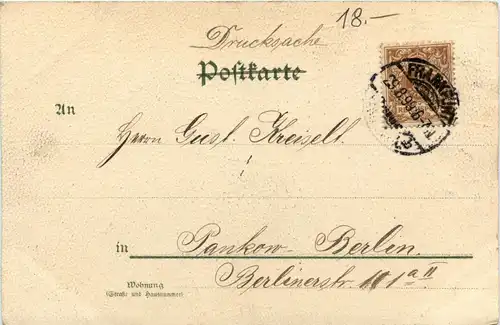 18.–
Drucksache
Postkarte
An
Herrn Gust. Kreiselt.
in Pankow-Berlin.
Berlinerstr. 101 a II
Wohnung
(Straße und Hausnummer)